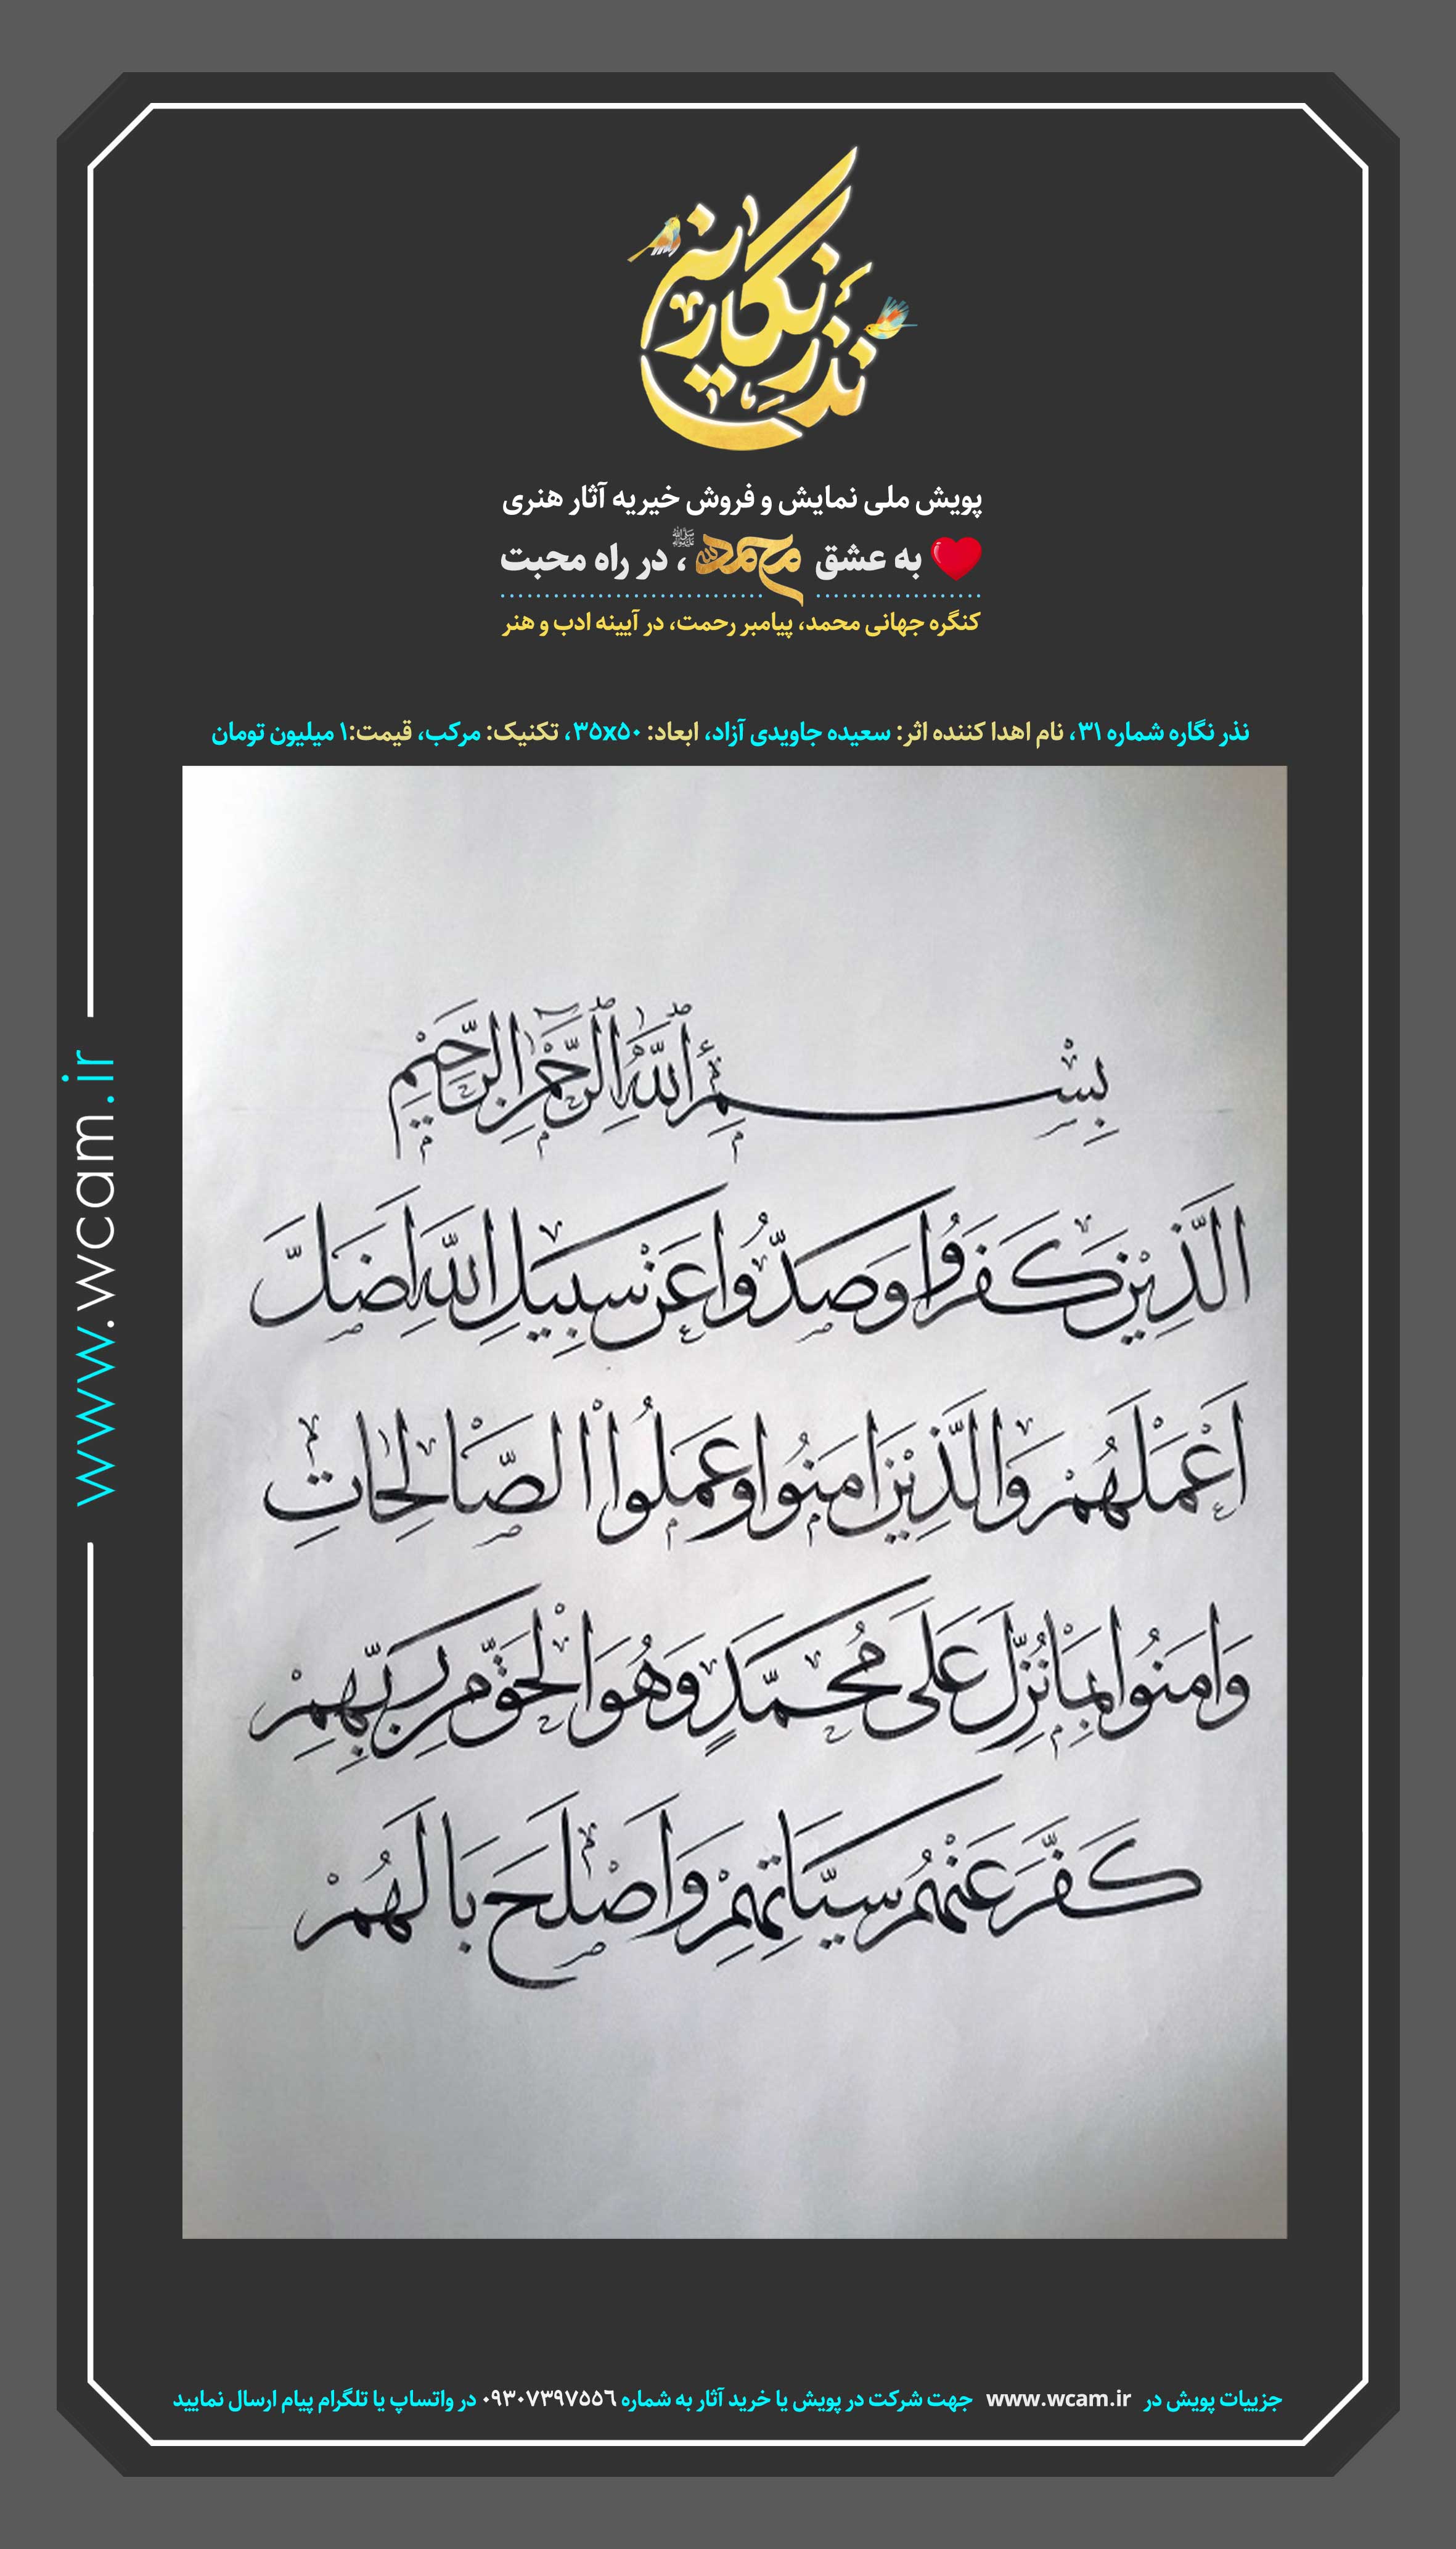 نذر نگاره
پویش ملی نمایش و فروش خیریه آثار هنری
به عشق محمد ﷺ، در راه محبت
کنگره جهانی محمد، پیامبر رحمت، در آیینه ادب و هنر
نذر نگاره شماره ۳۱، نام اهدا کننده اثر: سعیده جاویدی آزاد، ابعاد: ۳۵x۵۰، تکنیک: مرکب، قیمت:۱ میلیون تومان
بِسْمِ ٱللَّهِ ٱلرَّحْمٰنِ الرَّحِيْمِ
الَّذِيْنَ كَفَرُوا وَصَدُّوا عَنْ سَبِيلِ اللَّهِ اَضَلَّ
اَعْمَلَهُمْ وَالَّذِيْنَ امَنُوا وَعَمَلُوا الصَّالِحَاتِ
وَامَنُوا بِمَا نُزِّلَ عَلَى مُحَمَّدٍ وَهُوَ الْحَقُّ مِ رَبِّهِمْ
كَفَّرَ عَنْهُمْ سَيِّاتِهِمْ وَاَصْلَحَ بَالَهُمْ
www.wcam.ir
جزییات پویش در www.wcam.ir جهت شرکت در پویش یا خرید آثار به شماره ۰۹۳۰۷۳۹۷۵۵۶ در واتساپ یا تلگرام پیام ارسال نمایید